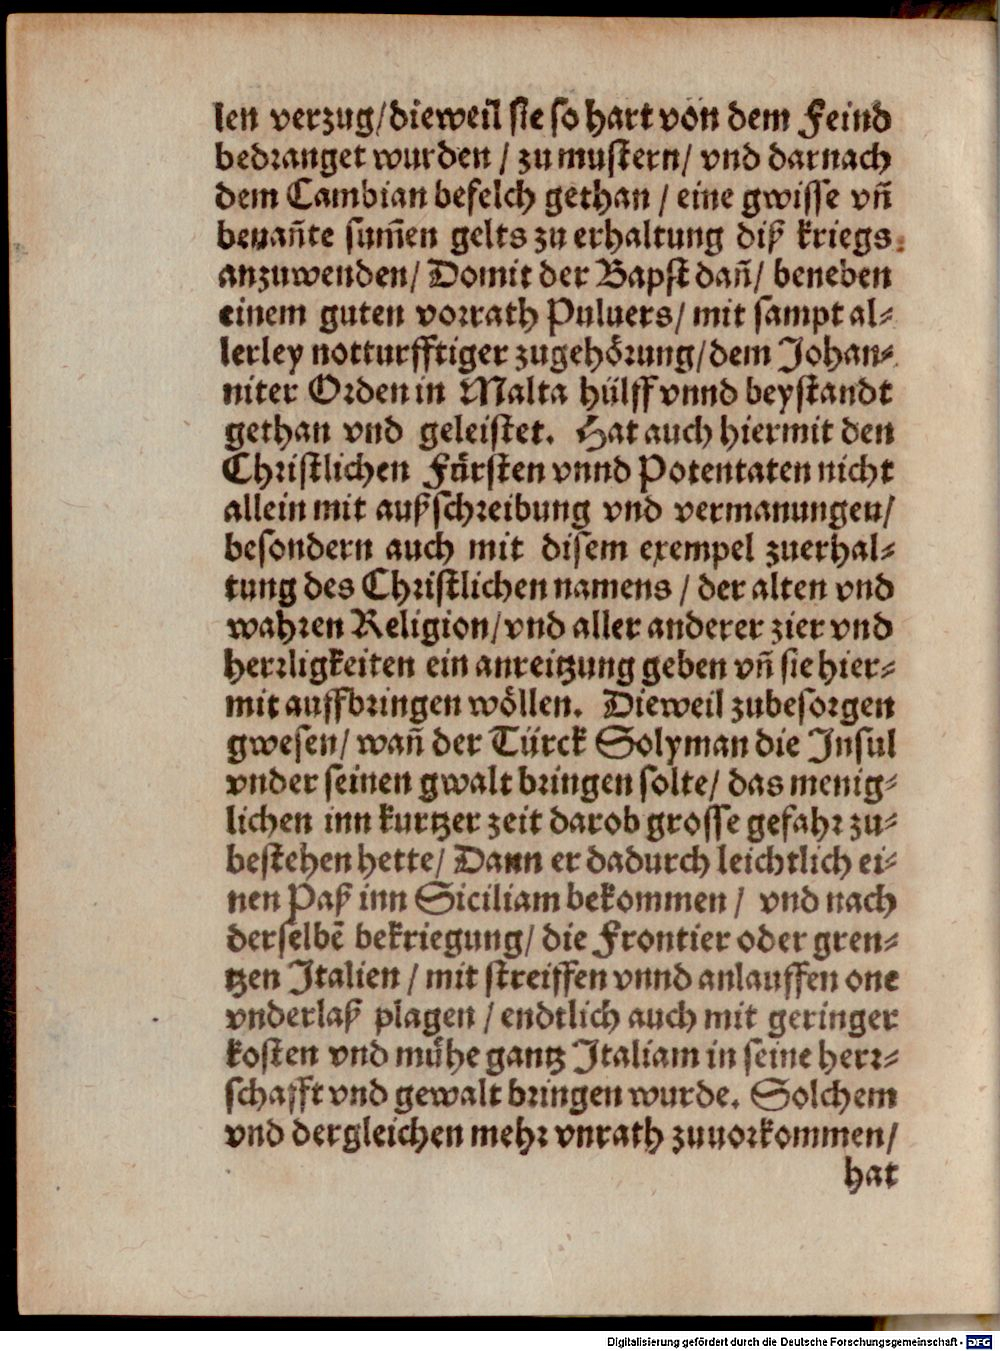 len verzug/dieweil sie so hart von dem Feind
bedranget wurden / zu mustern/ vnd darnach
dem Cambian befelch gethan / eine gwisse vñ
benañte sum̃en gelts zu erhaltung diß kriegs
anzuwenden/ Domit der Bapst dañ/ beneben
einem guten vorrath Puluers/ mit sampt al⸗
lerley notturfftiger zugehörung/dem Johan⸗
niter Orden in Malta hülff vnnd beystandt
gethan vnd geleistet. Hat auch hiermit den
Christlichen Fürsten vnnd Potentaten nicht
allein mit außschreibung vnd vermanungen/
besondern auch mit disem exempel zuerhal⸗
tung des Christlichen namens / der alten vnd
wahren Religion/vnd aller anderer zier vnd
herrligkeiten ein anreitzung geben vñ sie hier⸗
mit auffbringen wöllen. Dieweil zubesorgen
gwesen/ wañ der Türck Solyman die Insul
vnder seinen gwalt bringen solte/ das menig⸗
lichen inn kurtzer zeit darob grosse gefahr zu⸗
bestehen hette/ Dann er dadurch leichtlich ei⸗
nen Paß inn Siciliam bekommen / vnd nach
derselbẽ bekriegung/ die Frontier oder gren⸗
tzen Italien / mit streiffen vnnd anlauffen one
vnderlaß plagen / endtlich auch mit geringer
kosten vnd mühe gantz Italiam in seine herr⸗
schafft vnd gewalt bringen wurde. Solchem
vnd dergleichen mehr vnrath zuuorkommen/
hat
Digitalisierung gefördert durch die Deutsche Forschungsgemeinschaft - DFG